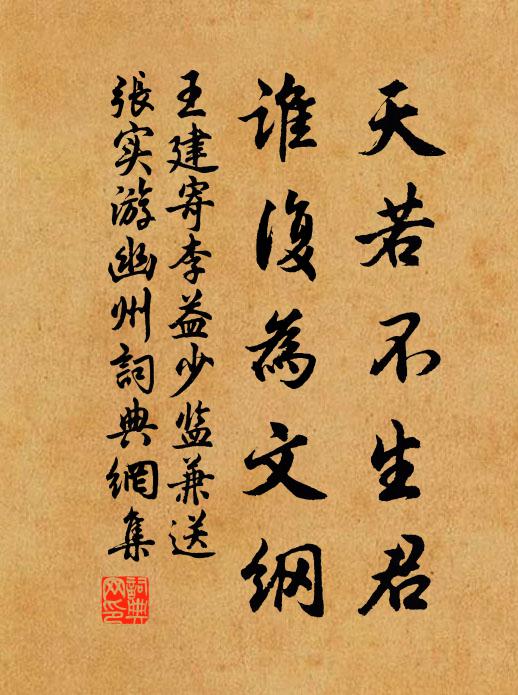 天若不生君
谁復為文纲
王建寄李益少监兼送
張实游幽州詞典網集
詞典网印